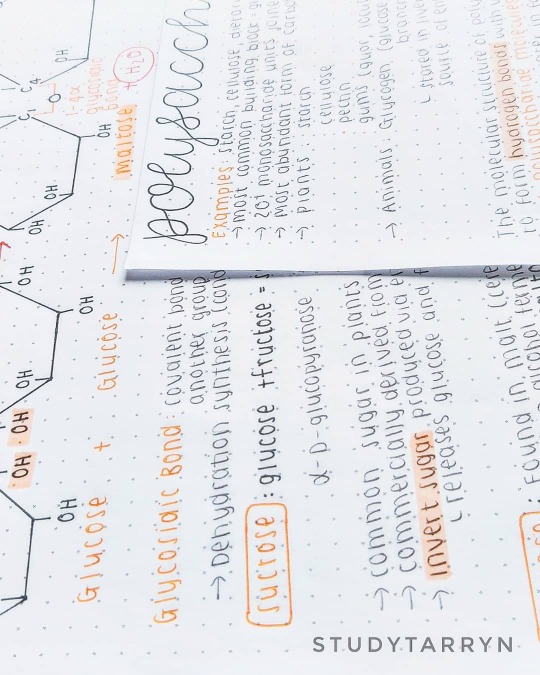 polysacch
Examples: starch, cellulose, dietar
→ most common building block = gl
→ 20+ monosaccharide units joine
→ most abundant form of carbo
→ plants starch
cellulose
pectin
gums (guar, locu
→ Animals Glycogen (glucose
branche
↳ stored in live
source of en
The molecular structure of poly
to form hydrogen bonds with w
polysaccharide molecules
OH
C4
C1
O
1-4α
glycosidic
bond
+ H₂O
maltose
OH
OH
OH
OH
OH
OH
OH · OH
OH
Glucose + Glucose →
Glycosidic Bond: covalent bond
another group
→ Dehydration synthesis (cond
sucrose: glucose + fructose = s
α-D-glucopyranose
→ common sugar in plants
→ commercially derived from
→ invert sugar produced via en
↳ releases glucose and f
: Found in malt (cere
alcohol ferme
STUDYTARRYN